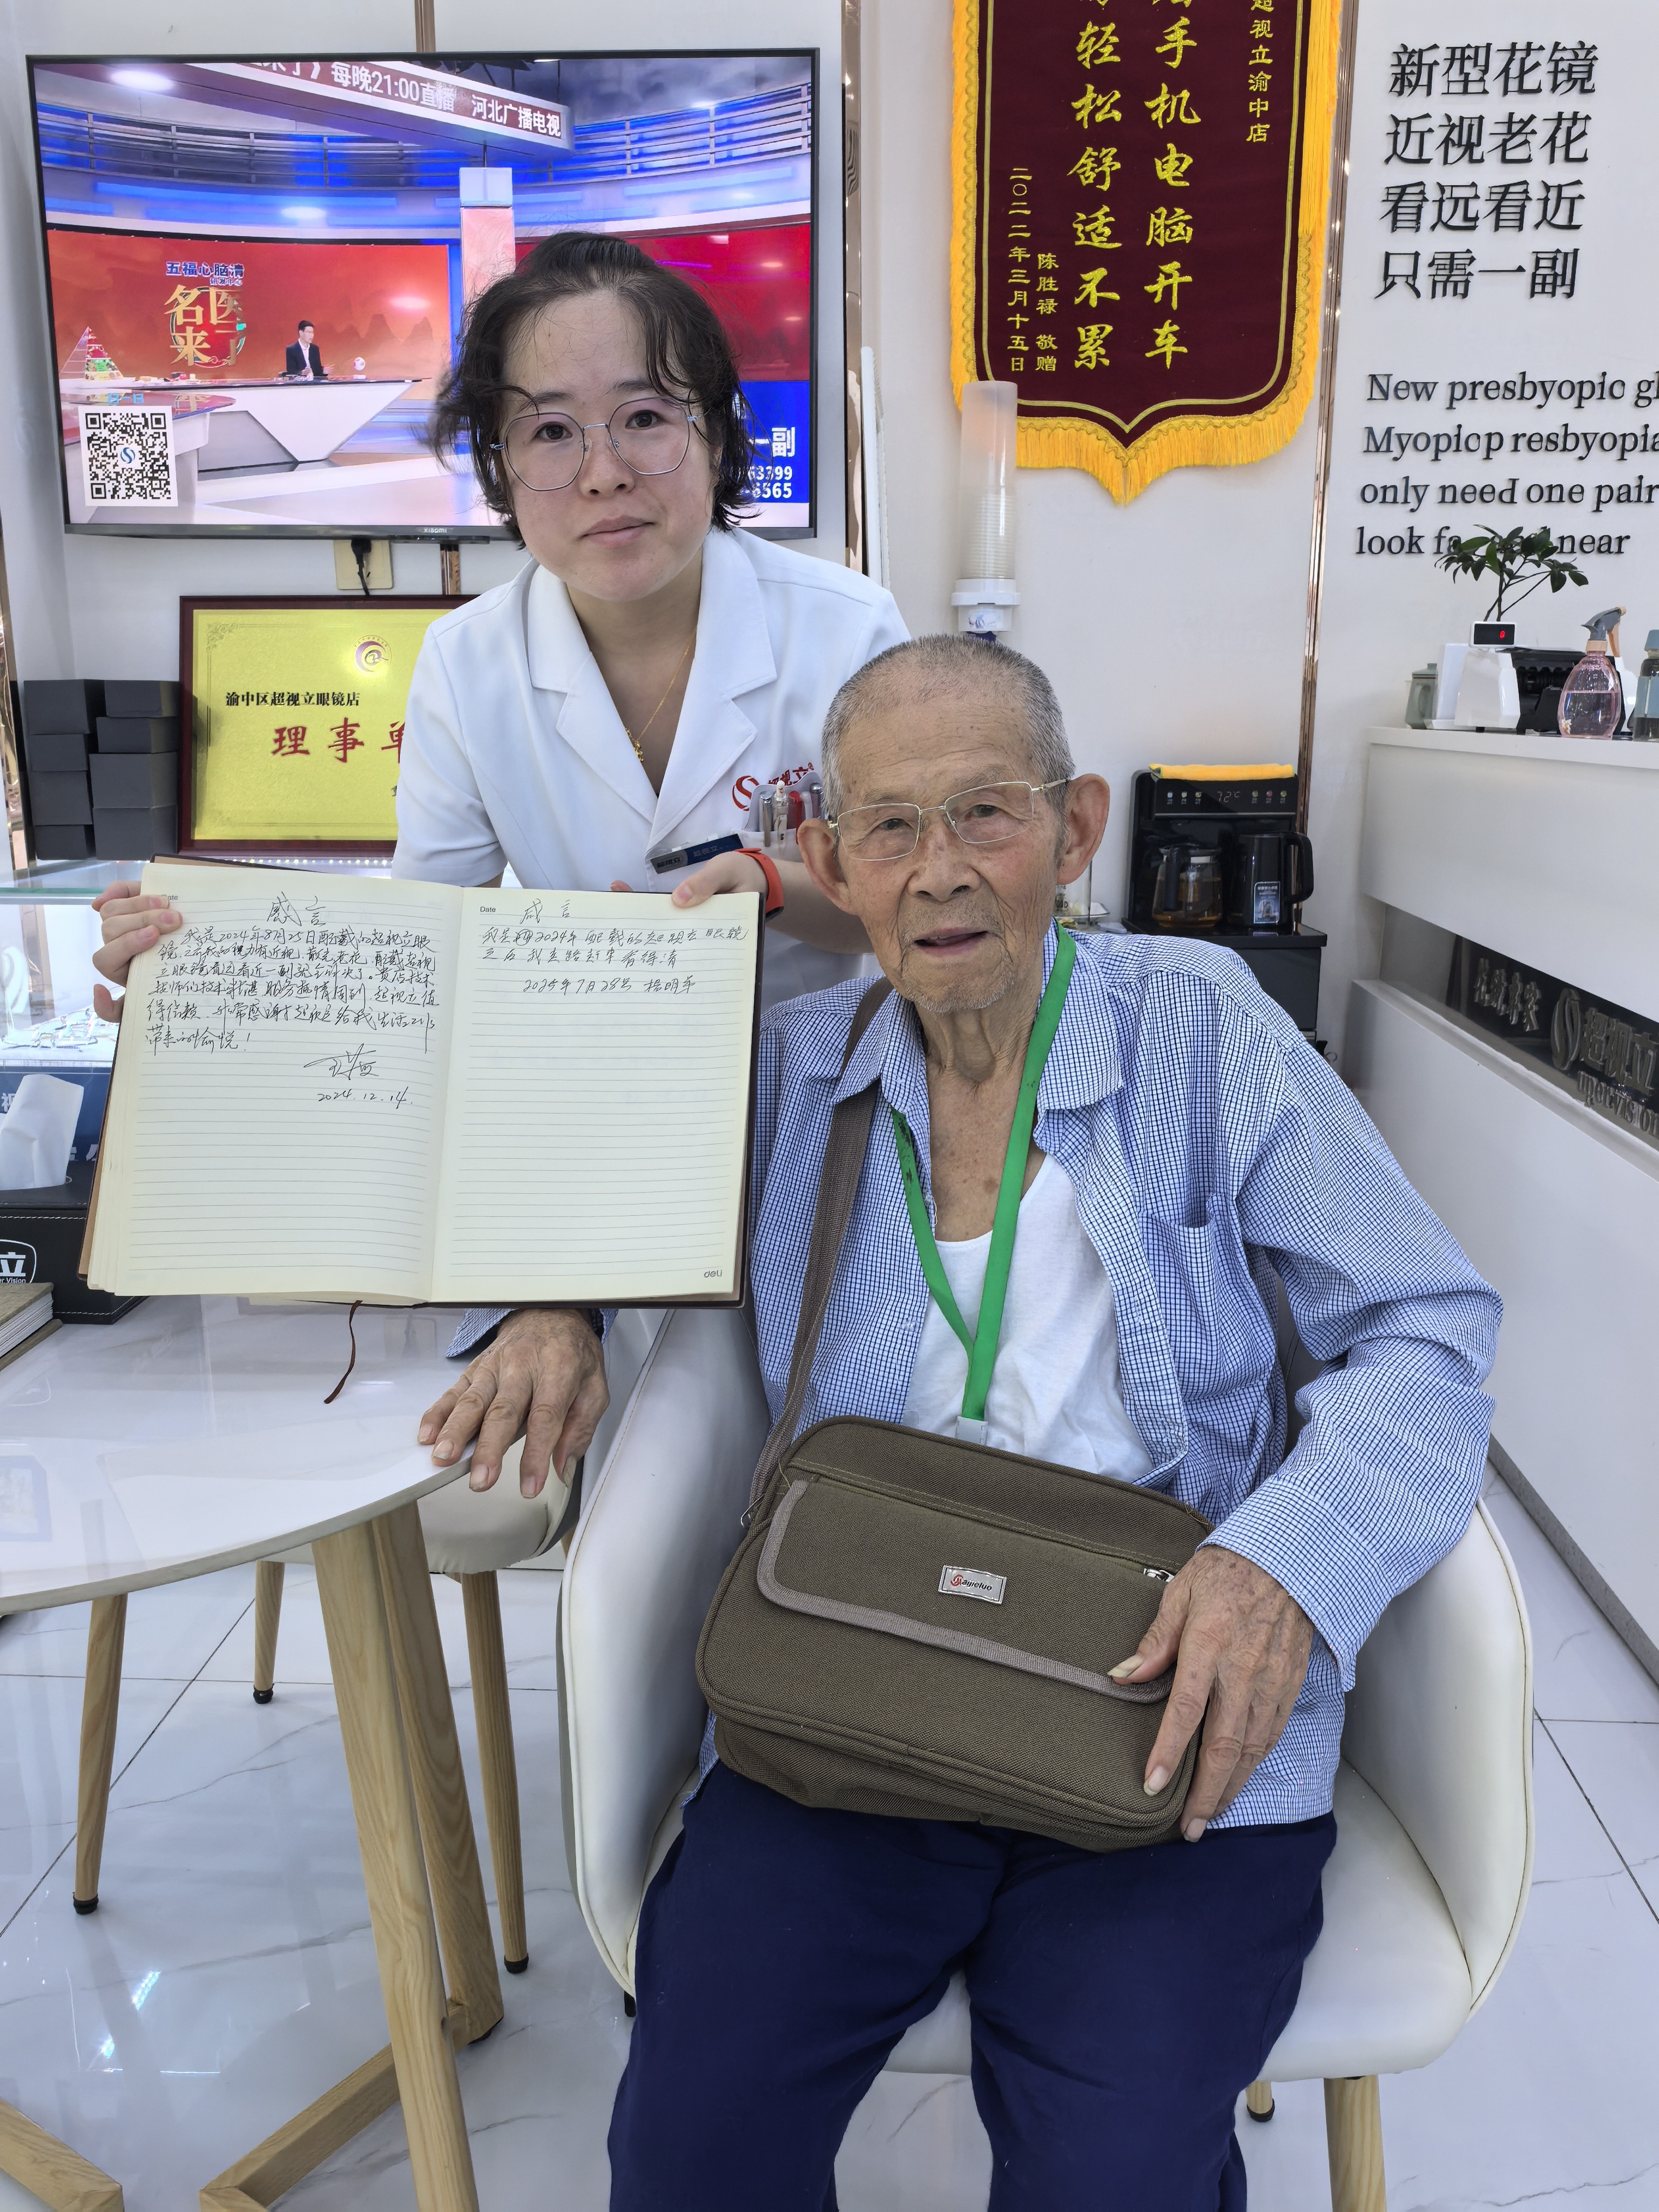 》每晚21:00直播 河北广播电视
五福心脑清
名医
来了
一副
63399
6565
xiaomi
超视立渝中店
手机电脑开车
轻松舒适不累
陈胜禄 敬赠
二〇二二年三月十五日
新型花镜
近视老花
看远看近
只需一副
New presbyopic gl
Myopicp resbyopia
only need one pair
look fa near
渝中区超视立眼镜店
理事单
72℃
Date
感言
我是2024年8月25日配戴的超视立眼
镜,之前我的视力有近视、散光、老花,配戴超视
立眼镜看远看近一副就全解决了。贵店技术
技师们技术精湛 服务热情周到,超视立值
得信赖,非常感谢超视立给我生活
带来的愉悦!
2024.12.14.
Date
感言
我是2024年配戴的超视立眼镜
之后我走路赶车看得清
2025年7月28号 杨明华
deli
超视立
立
er Vision